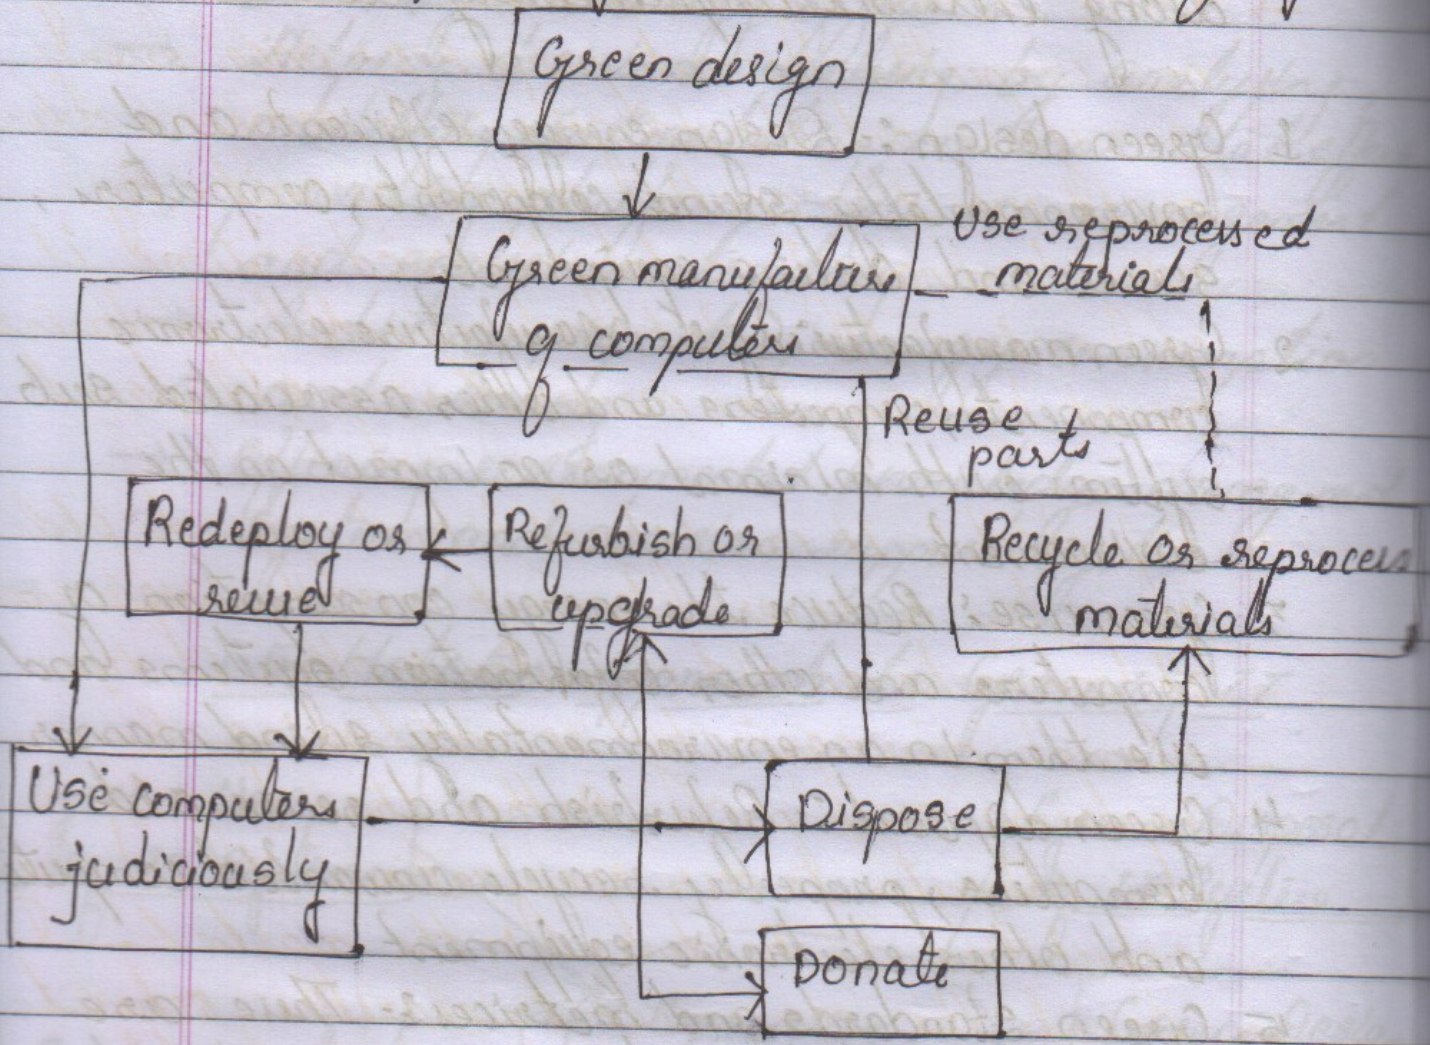 Green design
Green manufacture
of computers
Use reprocessed
materials
Reuse
parts
Redeploy or
reuse
Refurbish or
upgrade
Recycle or reprocess
materials
Use computers
judiciously
Dispose
Donate